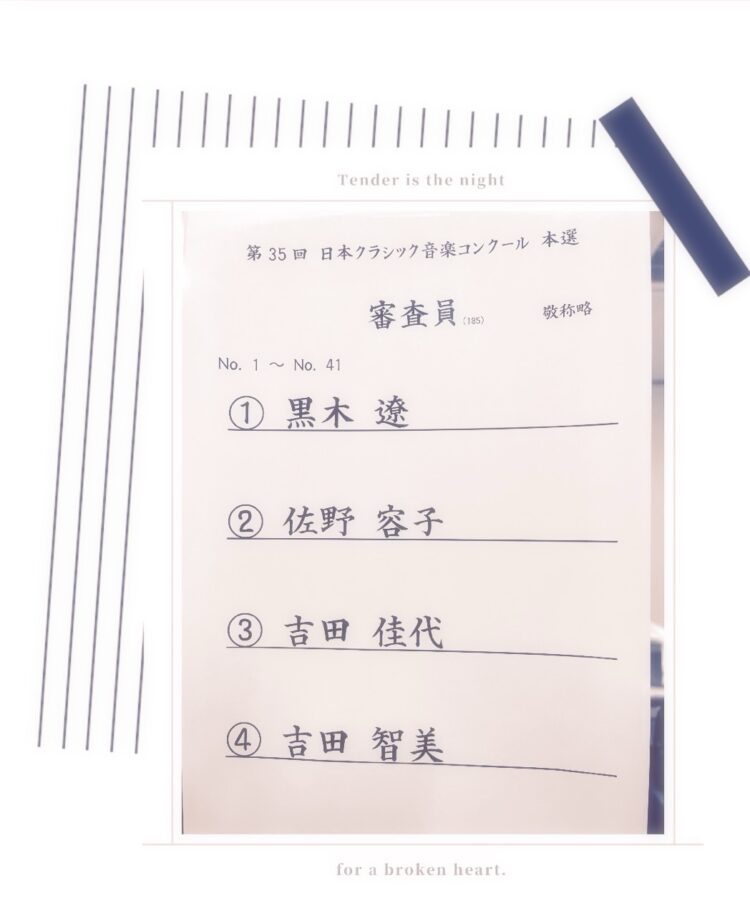 Tender is the night
第35回 日本クラシック音楽コンクール 本選
審査員 (185) 敬称略
No. 1 ～ No. 41
① 黒木 遼
② 佐野 容子
③ 吉田 佳代
④ 吉田 智美
for a broken heart.